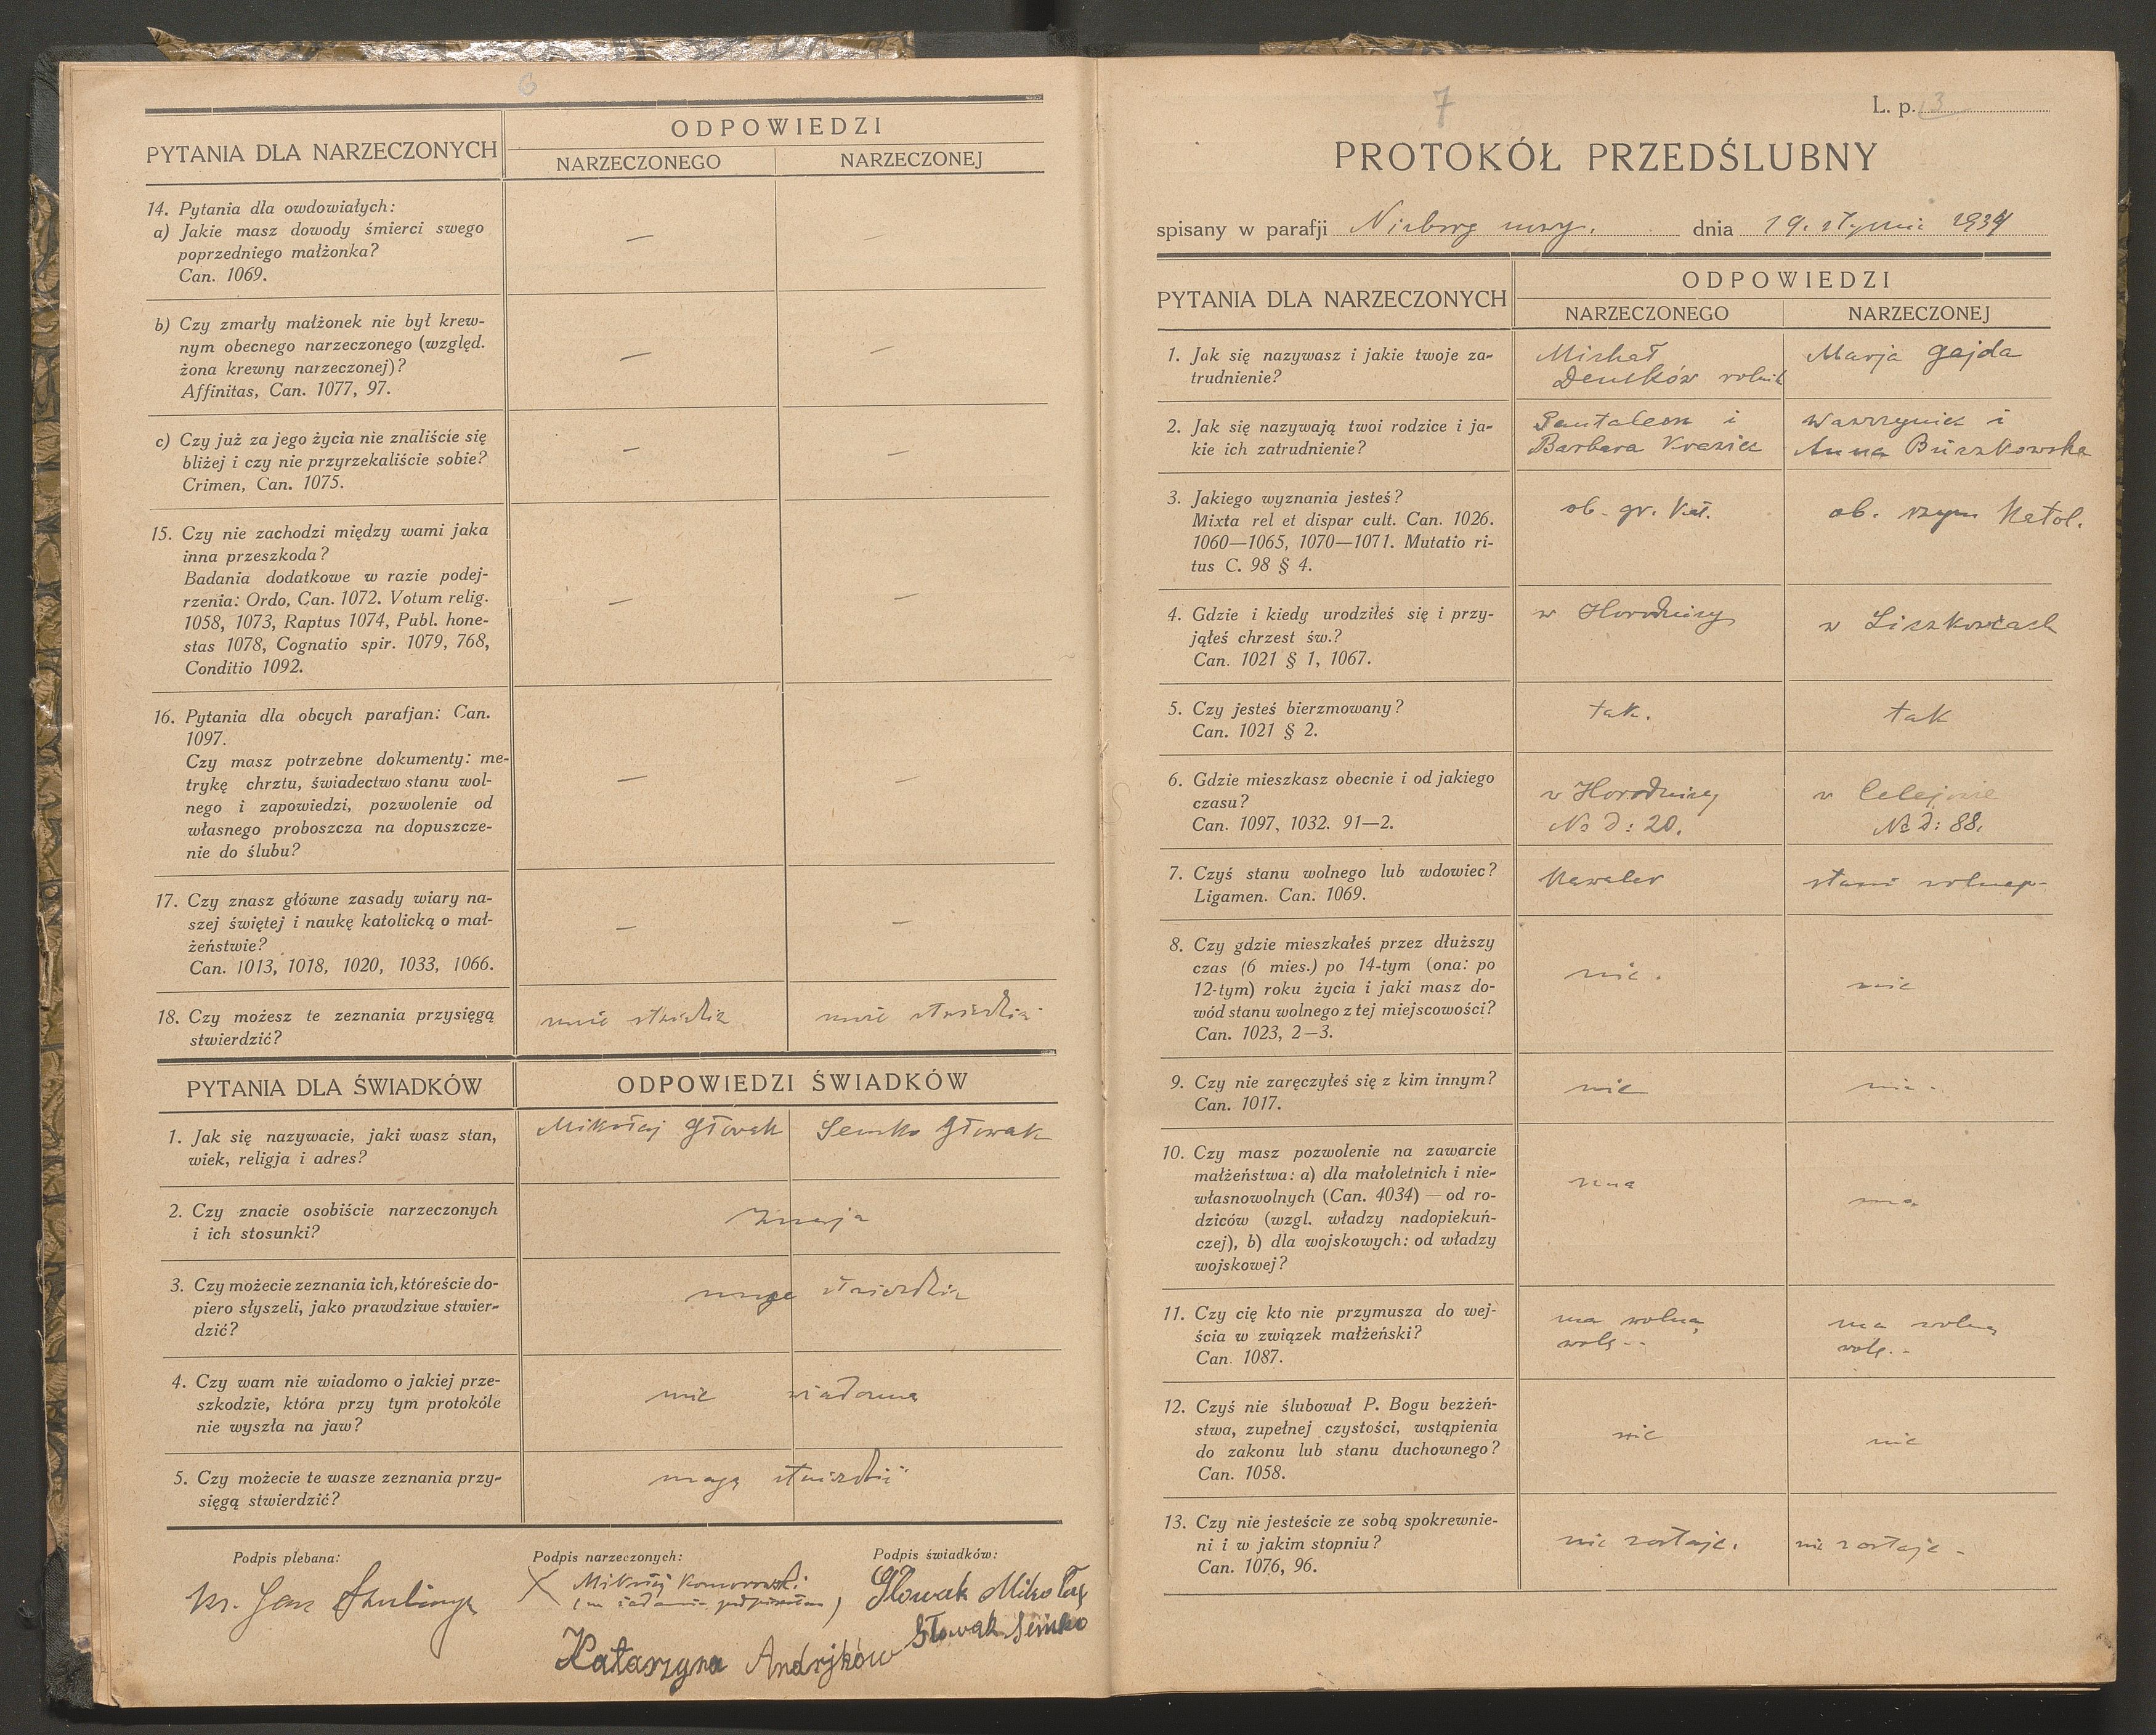 6
PYTANIA DLA NARZECZONYCH
ODPOWIEDZI
NARZECZONEGO
NARZECZONEJ
14. Pytania dla owdowiałych:
a) Jakie masz dowody śmierci swego
poprzedniego małżonka?
Can. 1069.
—
—
b) Czy zmarły małżonek nie był krew-
nym obecnego narzeczonego (względ.
żona krewny narzeczonej)?
Affinitas, Can. 1077, 97.
—
—
c) Czy już za jego życia nie znaliście się
bliżej i czy nie przyrzekaliście sobie?
Crimen, Can. 1075.
—
—
15. Czy nie zachodzi między wami jaka
inna przeszkoda?
Badania dodatkowe w razie podej-
rzenia: Ordo, Can. 1072. Votum relig.
1058, 1073, Raptus 1074, Publ. hone-
stas 1078, Cognatio spir. 1079, 768,
Conditio 1092.
—
—
16. Pytania dla obcych parafjan: Can.
1097.
Czy masz potrzebne dokumenty: me-
trykę chrztu, świadectwo stanu wol-
nego i zapowiedzi, pozwolenie od
własnego proboszcza na dopuszcze-
nie do ślubu?
—
—
17. Czy znasz główne zasady wiary na-
szej świętej i naukę katolicką o mał-
żeństwie?
Can. 1013, 1018, 1020, 1033, 1066.
—
—
18. Czy możesz te zeznania przysięgą
stwierdzić?
PYTANIA DLA ŚWIADKÓW
ODPOWIEDZI ŚWIADKÓW
1. Jak się nazywacie, jaki wasz stan,
wiek, religja i adres?
Mikołaj Głowak
Semko Głowak
2. Czy znacie osobiście narzeczonych
i ich stosunki?
Znają
3. Czy możecie zeznania ich, któreście do-
piero słyszeli, jako prawdziwe stwier-
dzić?
mogą stwierdzić
4. Czy wam nie wiadomo o jakiej prze-
szkodzie, która przy tym protokóle
nie wyszła na jaw?
nie wiadomo
5. Czy możecie te wasze zeznania przy-
sięgą stwierdzić?
mogą stwierdzić
Podpis plebana:
Podpis narzeczonych:
Podpis świadków:
Ks. Jan
Mikołaj Komorowski
Głowak Mikołaj
Głowak Semko
Katarzyna Andrijków
7
L. p. 3
PROTOKÓŁ PRZEDŚLUBNY
spisany w parafji Niżborg nowy. dnia 19. stycznia 1934
PYTANIA DLA NARZECZONYCH
ODPOWIEDZI
NARZECZONEGO
NARZECZONEJ
1. Jak się nazywasz i jakie twoje za-
trudnienie?
Michał
Denków rolnik
Marja Gajda
2. Jak się nazywają twoi rodzice i ja-
kie ich zatrudnienie?
Pantaleon i
Barbara
Wawrzyniec i
Anna Buszkowska
3. Jakiego wyznania jesteś?
Mixta rel et dispar cult. Can. 1026.
1060—1065, 1070—1071. Mutatio ri-
tus C. 98 § 4.
ob. gr. kat.
ob. rzym katol.
4. Gdzie i kiedy urodziłeś się i przy-
jąłeś chrzest św.?
Can. 1021 § 1, 1067.
w Horodnicy
w Liczkowcach
5. Czy jesteś bierzmowany?
Can. 1021 § 2.
tak.
tak
6. Gdzie mieszkasz obecnie i od jakiego
czasu?
Can. 1097, 1032. 91—2.
w Horodnicy
No d: 20.
w Celejowie
No d: 88.
7. Czyś stanu wolnego lub wdowiec?
Ligamen. Can. 1069.
Kawaler
stanu wolnego
8. Czy gdzie mieszkałeś przez dłuższy
czas (6 mies.) po 14-tym (ona: po
12-tym) roku życia i jaki masz do-
wód stanu wolnego z tej miejscowości?
Can. 1023, 2—3.
nie.
nie
9. Czy nie zaręczyłeś się z kim innym?
Can. 1017.
nie
nie
10. Czy masz pozwolenie na zawarcie
małżeństwa: a) dla małoletnich i nie-
własnowolnych (Can. 4034) — od ro-
dziców (wzgl. władzy nadopiekuń-
czej), b) dla wojskowych: od władzy
wojskowej?
ma
ma
11. Czy cię kto nie przymusza do wej-
ścia w związek małżeński?
Can. 1087.
ma wolną
wolę --
ma wolną
wolę --
12. Czyś nie ślubował P. Bogu bezżeń-
stwa, zupełnej czystości, wstąpienia
do zakonu lub stanu duchownego?
Can. 1058.
nie
nie
13. Czy nie jesteście ze sobą spokrewnie-
ni i w jakim stopniu?
Can. 1076, 96.